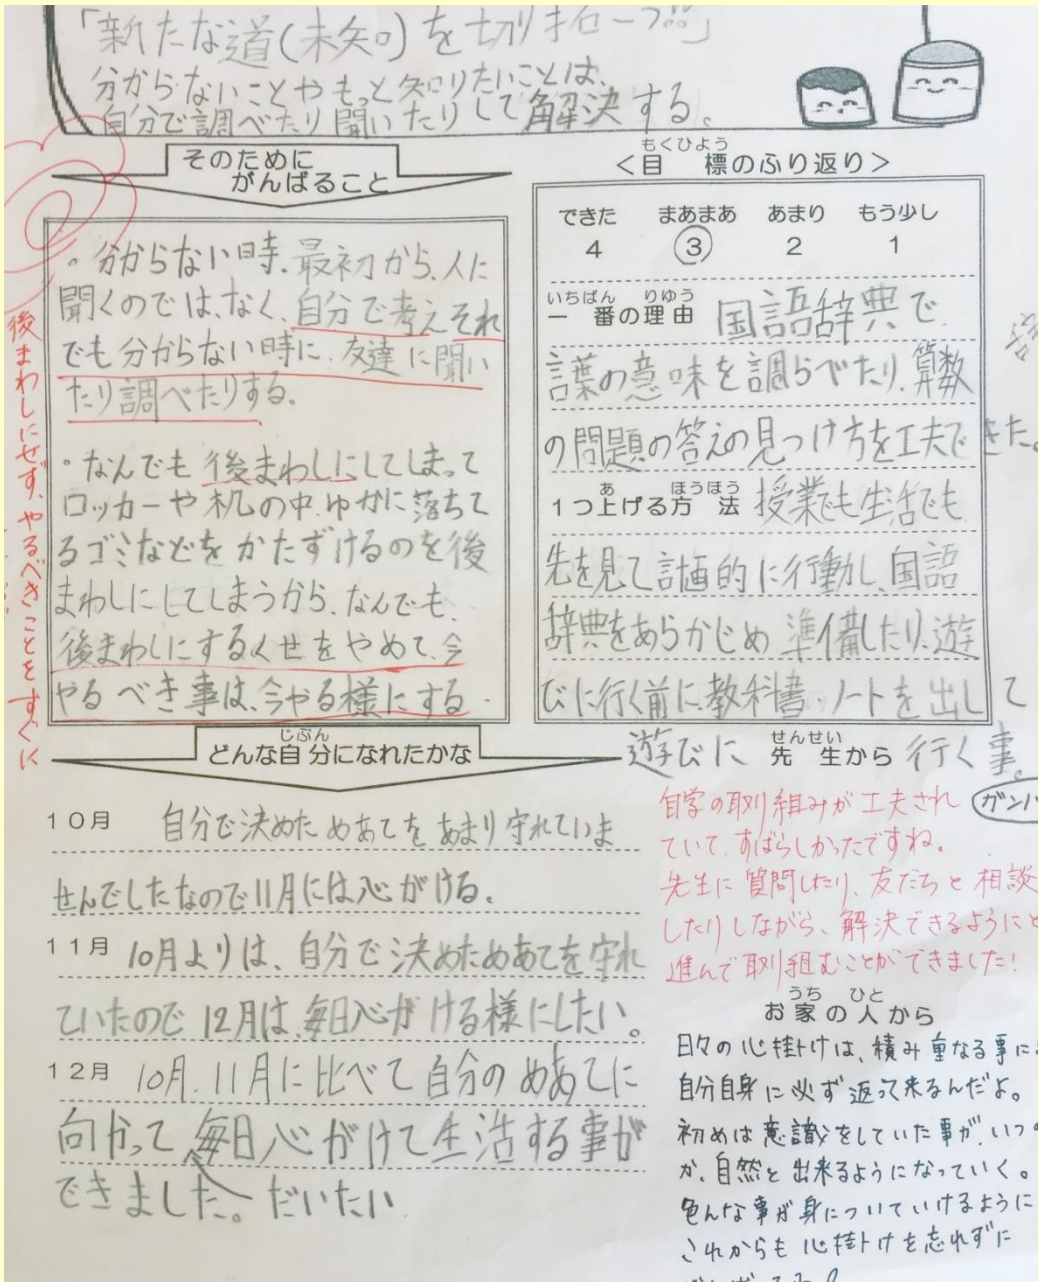 「新たな道(未知)を切り拓こう!!」
分からないことやもっと知りたいことは、
自分で調べたり聞いたりして解決する。
そのために
がんばること
・分からない時、最初から、人に
聞くのでは、なく、自分で考えそれ
でも分からない時に、友達に聞い
たり調べたりする。
・なんでも後まわしにしてしまって
ロッカーや机の中、ゆかに落ちて
るゴミなどをかたずけるのを後
まわしにしてしまうから、なんでも、
後まわしにするくせをやめて、今
やるべき事は、今やる様にする
後まわしにせず、やるべきことをすぐに
もくひょう
<目標のふり返り>
できた まあまあ あまり もう少し
4 ③ 2 1
いちばん りゆう
一番の理由 国語辞典で、
言葉の意味を調らべたり、算数
の問題の答えの見つけ方を工夫できた。
あ ほうほう
1つ上げる方法 授業でも生活でも
先を見て計画的に行動し、国語
辞典をあらかじめ準備したり、遊
びに行く前に、教科書、ノートを出して
遊びに行く事。
じぶん
どんな自分になれたかな
10月 自分で決めためあてをあまり守れていま
せんでしたなので11月には心がける。
11月 10月よりは、自分で決めためあてを守れ
ていたので12月は、毎日心がける様にしたい。
12月 10月、11月に比べて自分のめあてに
向かって毎日心がけて生活する事が
できました。だいたい
せんせい
先生から
自学の取り組みが工夫され
ていて、すばらしかったですね。
ガンバ
先生に質問したり、友だちと相談
したりしながら、解決できるようにと
進んで取り組むことができました!
うち ひと
お家の人から
日々の心掛けは、積み重なる事に
自分自身に必ず返って来るんだよ。
初めは意識をしていた事が、いつ
か、自然と出来るようになっていく。
色んな事が身についていけるように
これからも心掛けを忘れずに